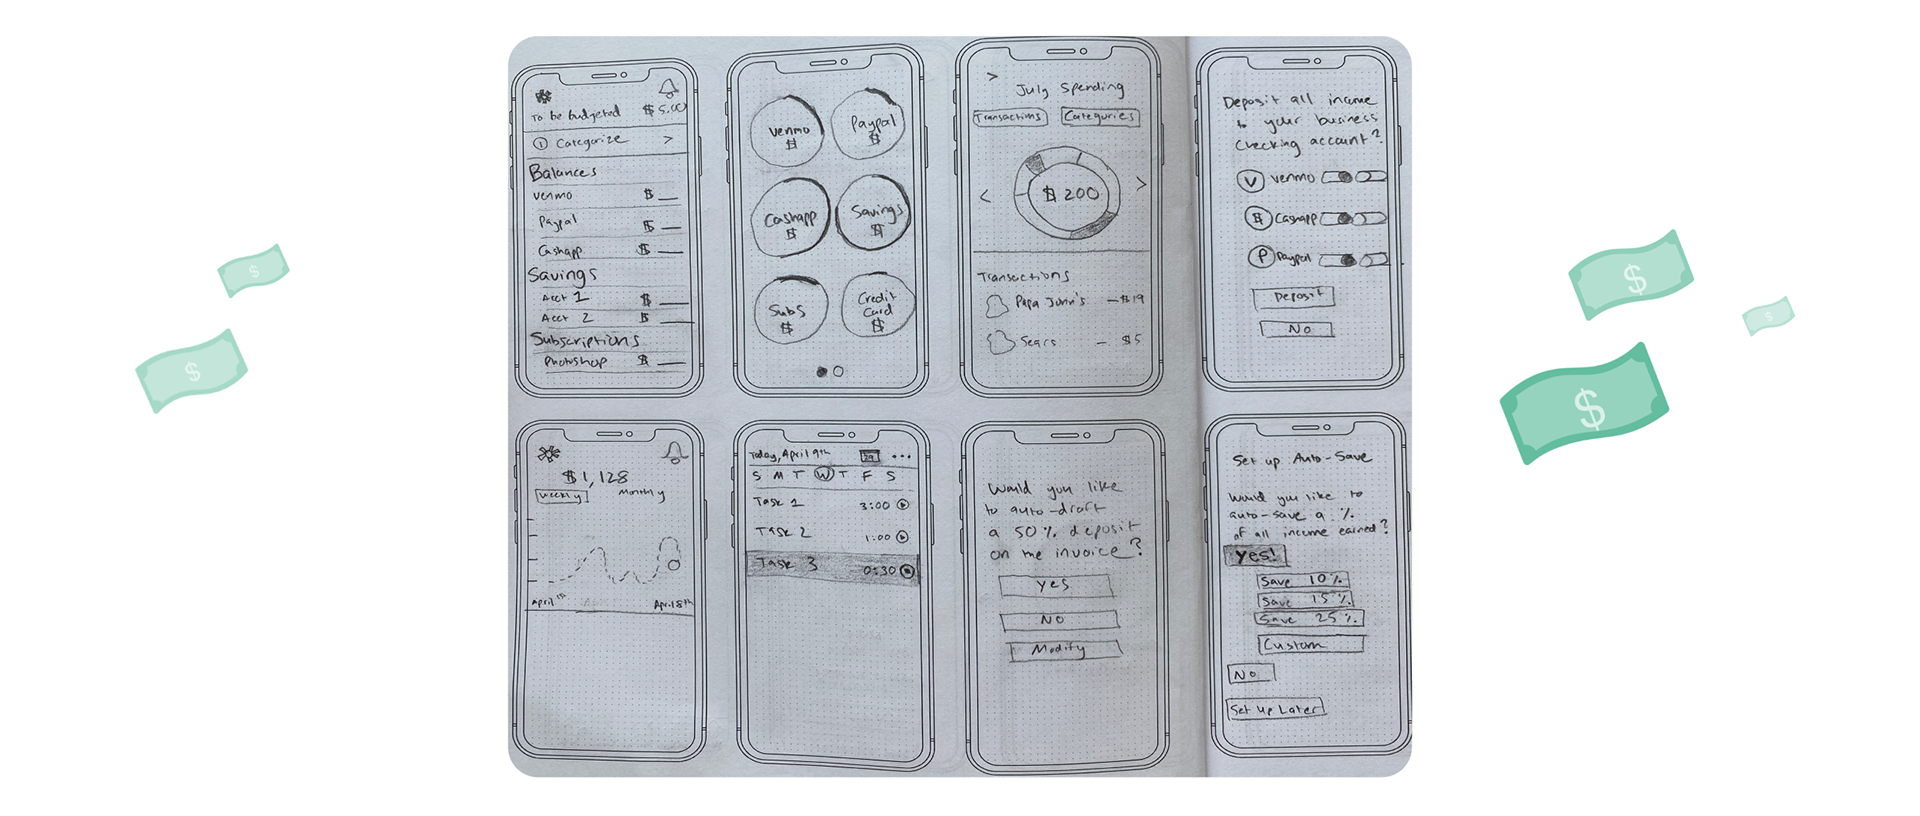 To be budgeted $5.00
1 Categorize >
Balances
Venmo $
Paypal $
Cashapp $
Savings
Acct 1 $
Acct 2 $
Subscriptions
Photoshop $
Venmo
$
Paypal
$
Cashapp
$
Savings
$
Subs
$
Credit
Card
$
>
July Spending
Transactions Categories
< $200 >
Transactions
Papa John's -$19
Sears - $5
Deposit all income
to your business
checking account?
V Venmo
$ Cashapp
P Paypal
Deposit
No
$1,128
Weekly Monthly
April 1st April 8th
Today, April 9th ...
S M T W T F S
Task 1 3:00
Task 2 1:00
Task 3 0:30
Would you like
to auto-draft
a 50% deposit
on the invoice?
Yes
No
Modify
Set up Auto-Save
Would you like to
auto-save a %
of all income earned?
Yes!
Save 10%
Save 15%
Save 25%
Custom
No
Set Up Later
$
$
$
$
$